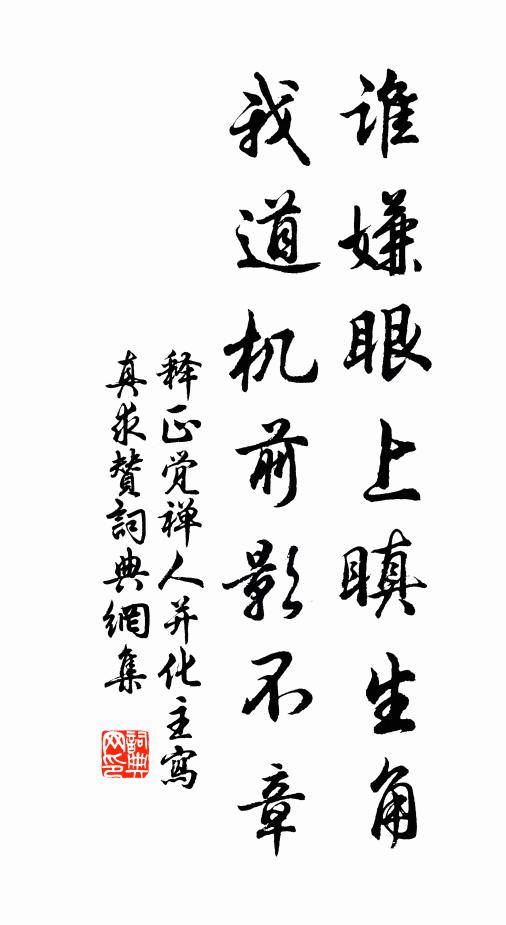 谁嫌眼上瞋生角
我道机前影不章
释正觉禅人并化主寫
真求賛詞典網集
詞典网印